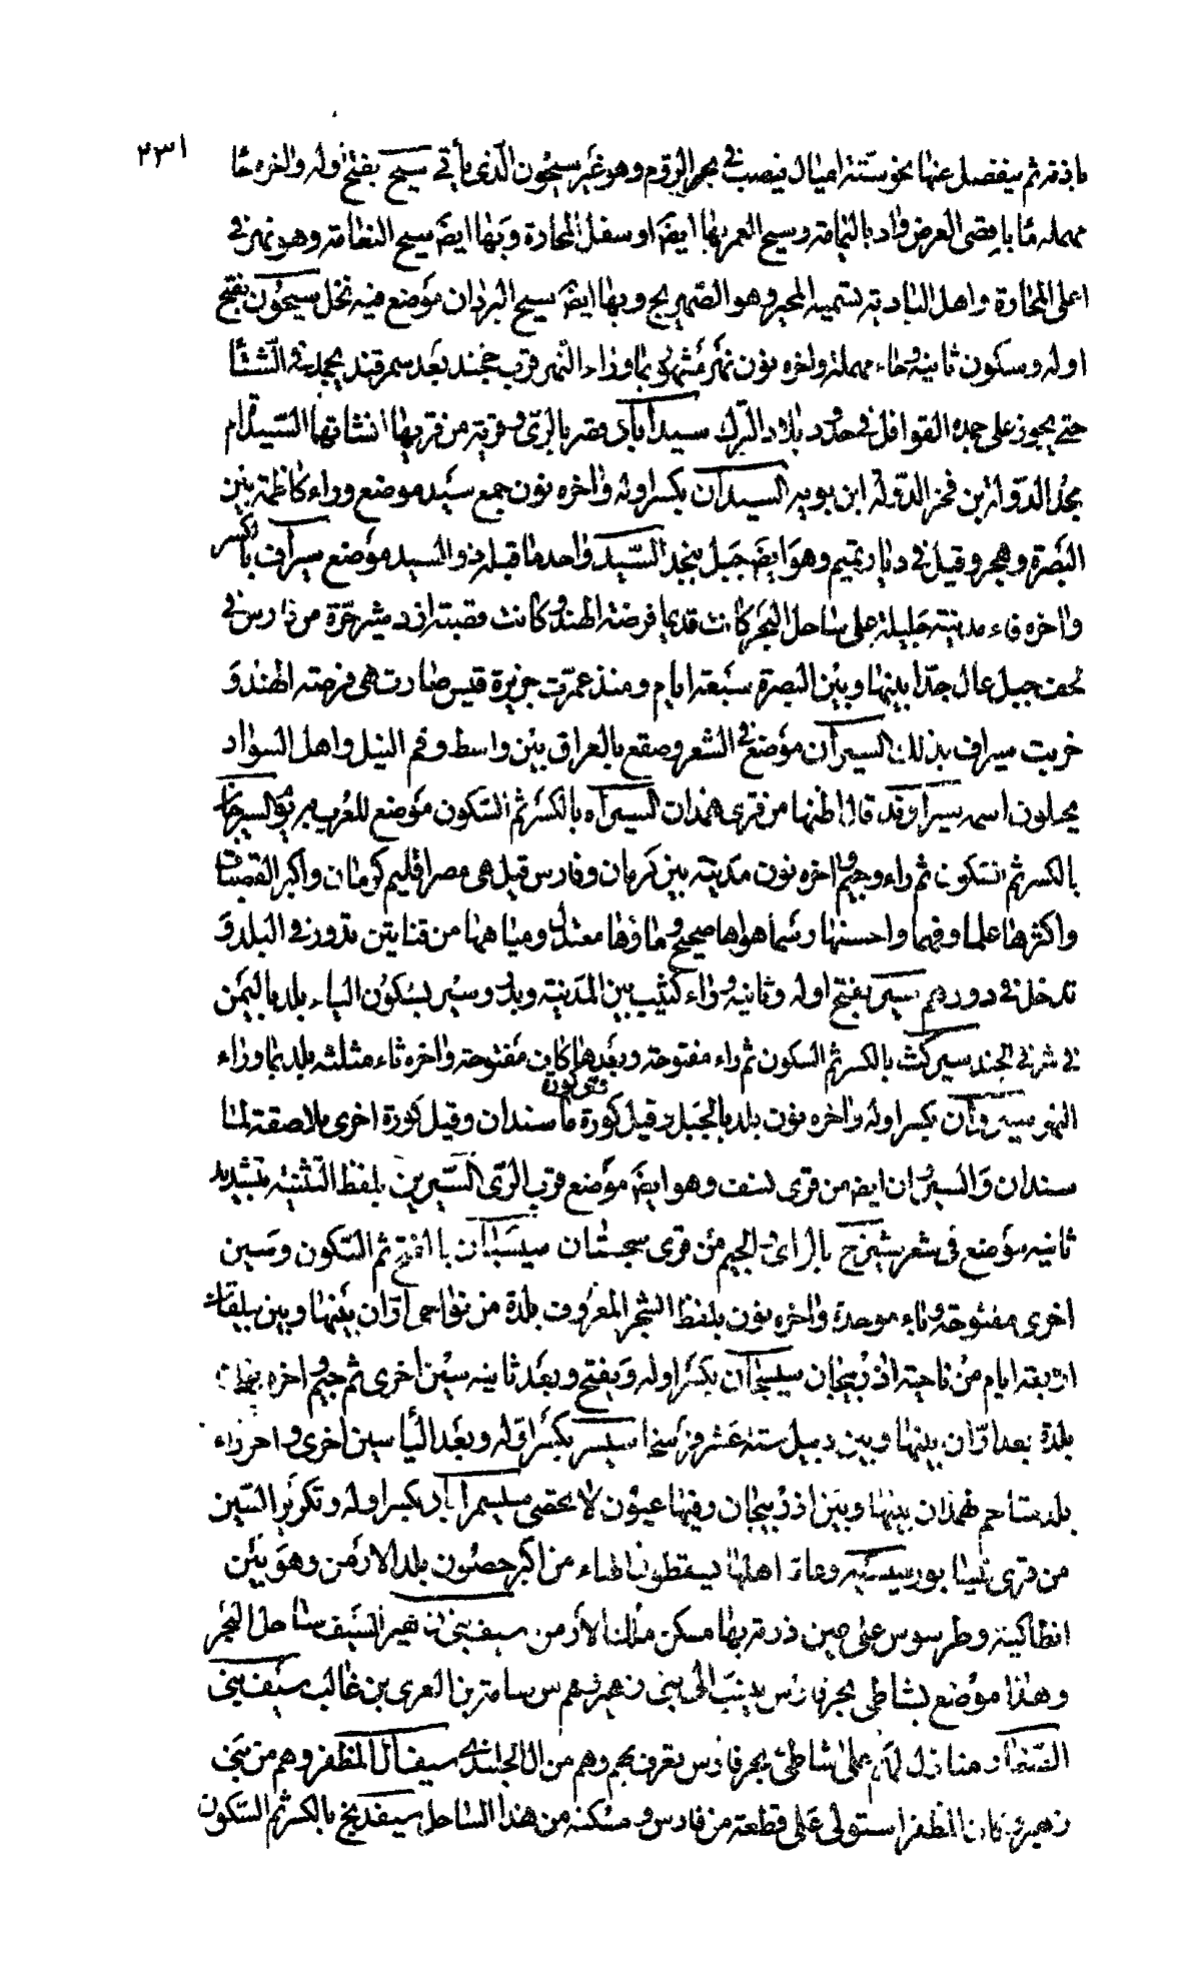 ٢٣١
باذنه ثم ينفصل عنها نحو ستة اميال فيصب في بحر الروم وهو غير سيحون الذي يأتي سيح بفتح اوله واخره حا
مهملة ماء باقصى العرض واد باليمامة وسيح الغمر بها ايضا اوسفل المجازة وبها ايضا سيح النعامة وهو نهر في
اعلى المجازة واهل البادية تسميه المخبر وهو الصهريج وبها ايضا سيح البردان موضع فيه نخل سيحون بفتح
اوله وسكون ثانيه وحاء مهملة واخره نون نهر مشهور بما وراء النهر قرب خجند بعد سمرقند يجمد في الشتا
حتى يجوز على جمده القوافل في حدود بلاد الترك سيداباد قصر بالري وقرية من قريها انشاتها السيدة ام
مجد الدولة بن فخر الدولة ابن بويه السيدان بكسر اوله واخره نون جمع سيد موضع وراء كاظمة بين
البصرة وهجر وقيل في ديار تميم وهو ايضا جبل بنجد السيد واحد ما قبله ذو السيد موضع سيراف بالكسر
واخره فاء مدينة جليلة على ساحل البحر كانت قديما فرضة الهند وكانت قصبة ازدشير خرة من فارس في
لحف جبل عال جدا بينها وبين البصرة سبعة ايام ومنذ عمرت جزيرة قيس صارت هي فرضة الهند و
خربت سيراف بذلك السيران موضع في الشعر وصقع بالعراق بين واسط وفم النيل واهل السواد
يحيلون اسمه سيراوند قال اظنها من قرى همذان السيراه بالكسر ثم السكون موضع للعرب السيرجان
بالكسر ثم السكون ثم راء وجيم واخره نون مدينة بين كرمان وفارس قيل هي مصر اقليم كرمان واكبر القصبات
واكثرها علما وفهما واحسنها رسما هواها صحيح وماؤها معتدل ومياهها من قناتين تدور في البلد و
تدخل في دورهم سير بفتح اوله وثانيه وراء كثيب بين المدينة وبدر وسير بسكون الياء بلد باليمن
في شرقي الجند سيركث بالكسر ثم السكون ثم راء مفتوحة وبعدها كاف مفتوحة واخره ثاء مثلثة بلد بما وراء
النهر سيروان بكسر اوله واخره نون بلد بالجبل وقيل كورة ماسندان وقيل كورة اخرى ملاصقة لما
سندان والسيروان ايضا من قرى نسف وهو ايضا موضع قرب الري السيرين بلفظ التثنية بتشديد
ثانيه موضع في شعر سيزج بالزاى والجيم من قرى سجستان سيسبان بالفتح ثم السكون وسين
اخرى مفتوحة وباء موحدة واخره نون بلفظ الشجر المعروف بلدة من نواحى ارّان بينها وبين بيلقان
اربعة ايام من ناحية اذربيجان سيسجان بكسر اوله ويفتح وبعد ثانيه سين اخرى ثم جيم واخره نون
بلدة بعد ارّان بينها وبين دبيل ستة عشر فرسخا سيسر بكسر اوله وبعد اليا سين اخرى واخر راء
بلد متاخم همذان بينها وبين اذربيجان وفيها عيون لا تحصى سيسمراباد بكسر اوله وتكرير السين
من قرى نيسابور سيسيه وعامة اهلها يسقطون الهاء من اكبر حصون بلد الارمن وهو بين
انطاكية وطرسوس على عين ذربة بها مسكن ملك الارمن سيف بني زهير السيف ساحل البحر
وهذا موضع بشاطى بحر فارس ينسب الى بني زهير وهم من سامة بن لوى بن غالب سيف بني
الصفار منازل لهم على شاطئ بحر فارس يعرف بهم وهم من ال الجلندى سيف ال المظفر وهم من بني
زهير وكان المظفر استولى على قطعة من فارس ومسكنه من هذا الساحل سيفدنج بالكسر ثم السكون